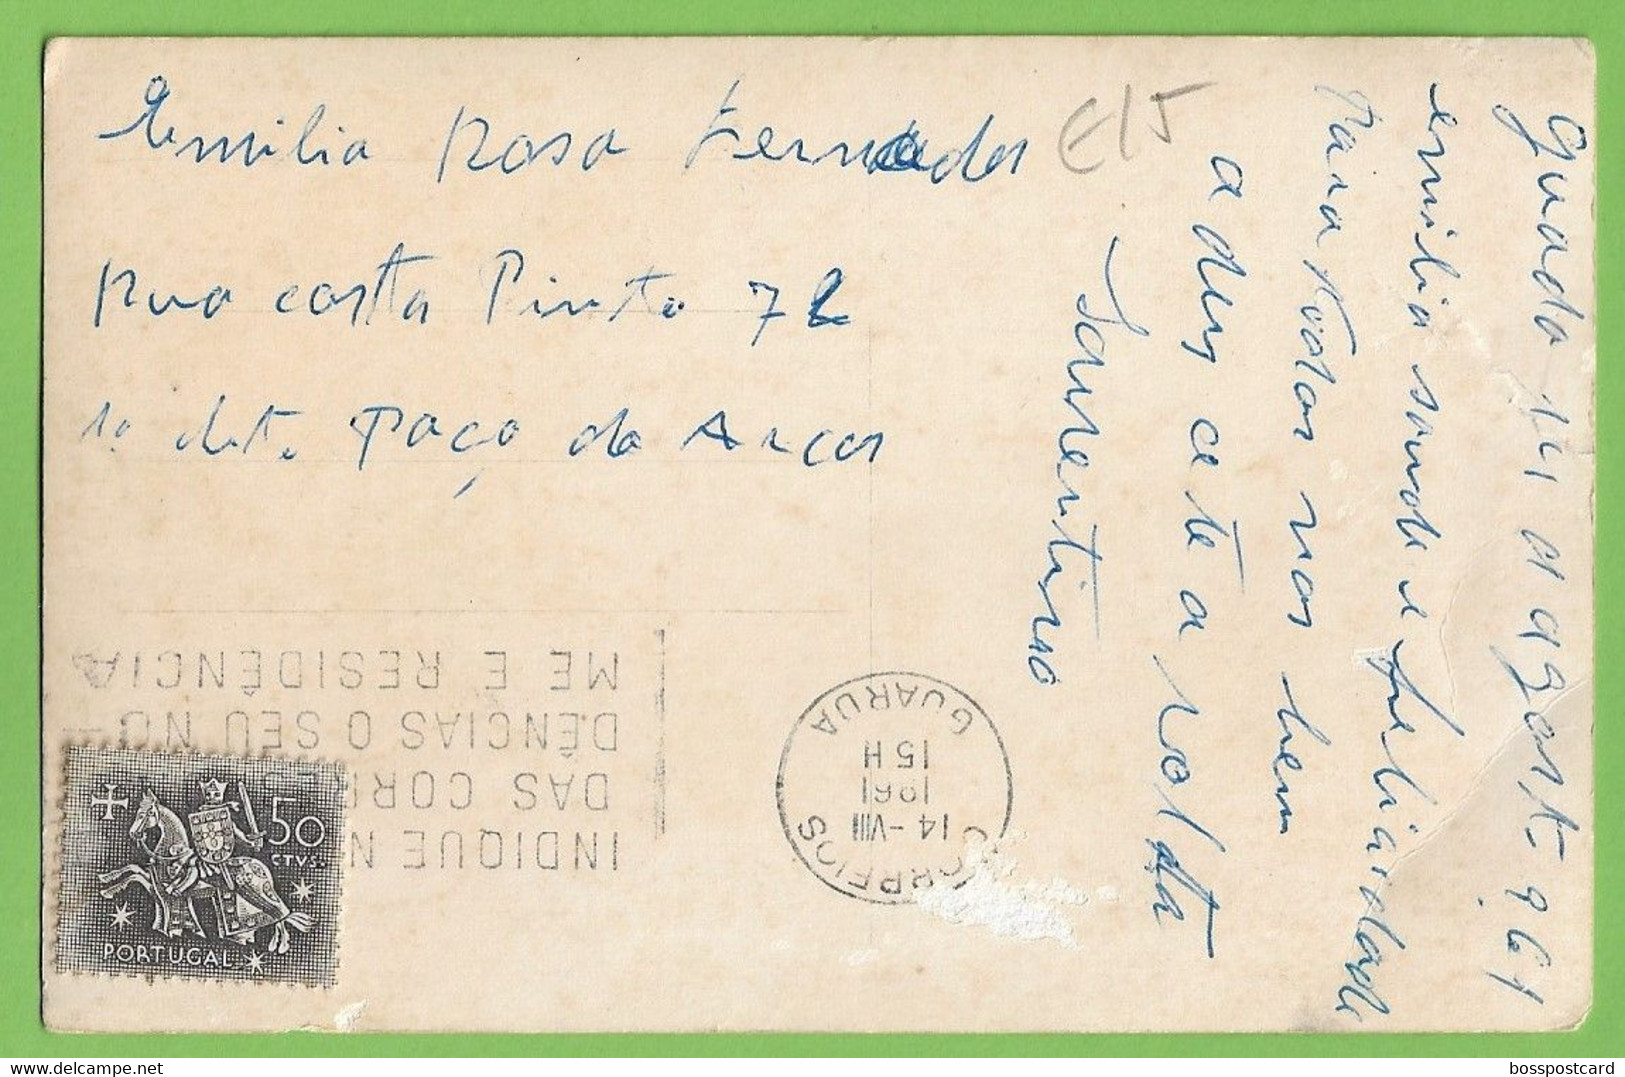 Emilia Rosa Fernades
Rua costa Pinto 72
1º dt. Paço de Arcos
E15
Guarda 14 d agost- 961
emilia saude e felicidade
Para todos nos bem
adeus até a volta
INDIQUE N
DAS CORRES
DÊNCIAS O SEU NO
ME E RESIDÊNCIA
CORREIOS
14-VIII
1961
15 H
GUARDA
50
CTVS.
PORTUGAL
bosspostcard